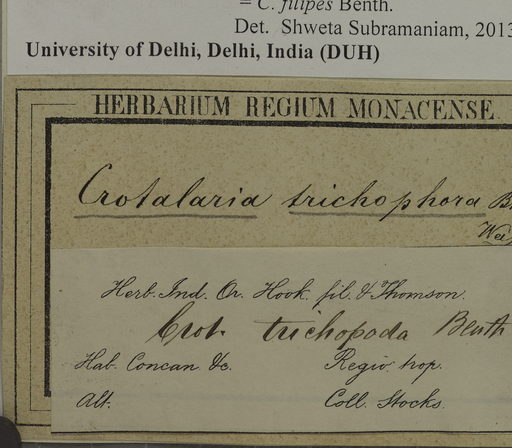 = C. filipes Benth.
Det. Shweta Subramaniam, 2013
University of Delhi, Delhi, India (DUH)
HERBARIUM REGIUM MONACENSE.
Crotalaria trichophora
Herb. Ind. Or. Hook. fil. & Thomson.
Crot. trichopoda Benth
Hab. Concan &c. Regio: trop.
Alt. Coll. Stocks.